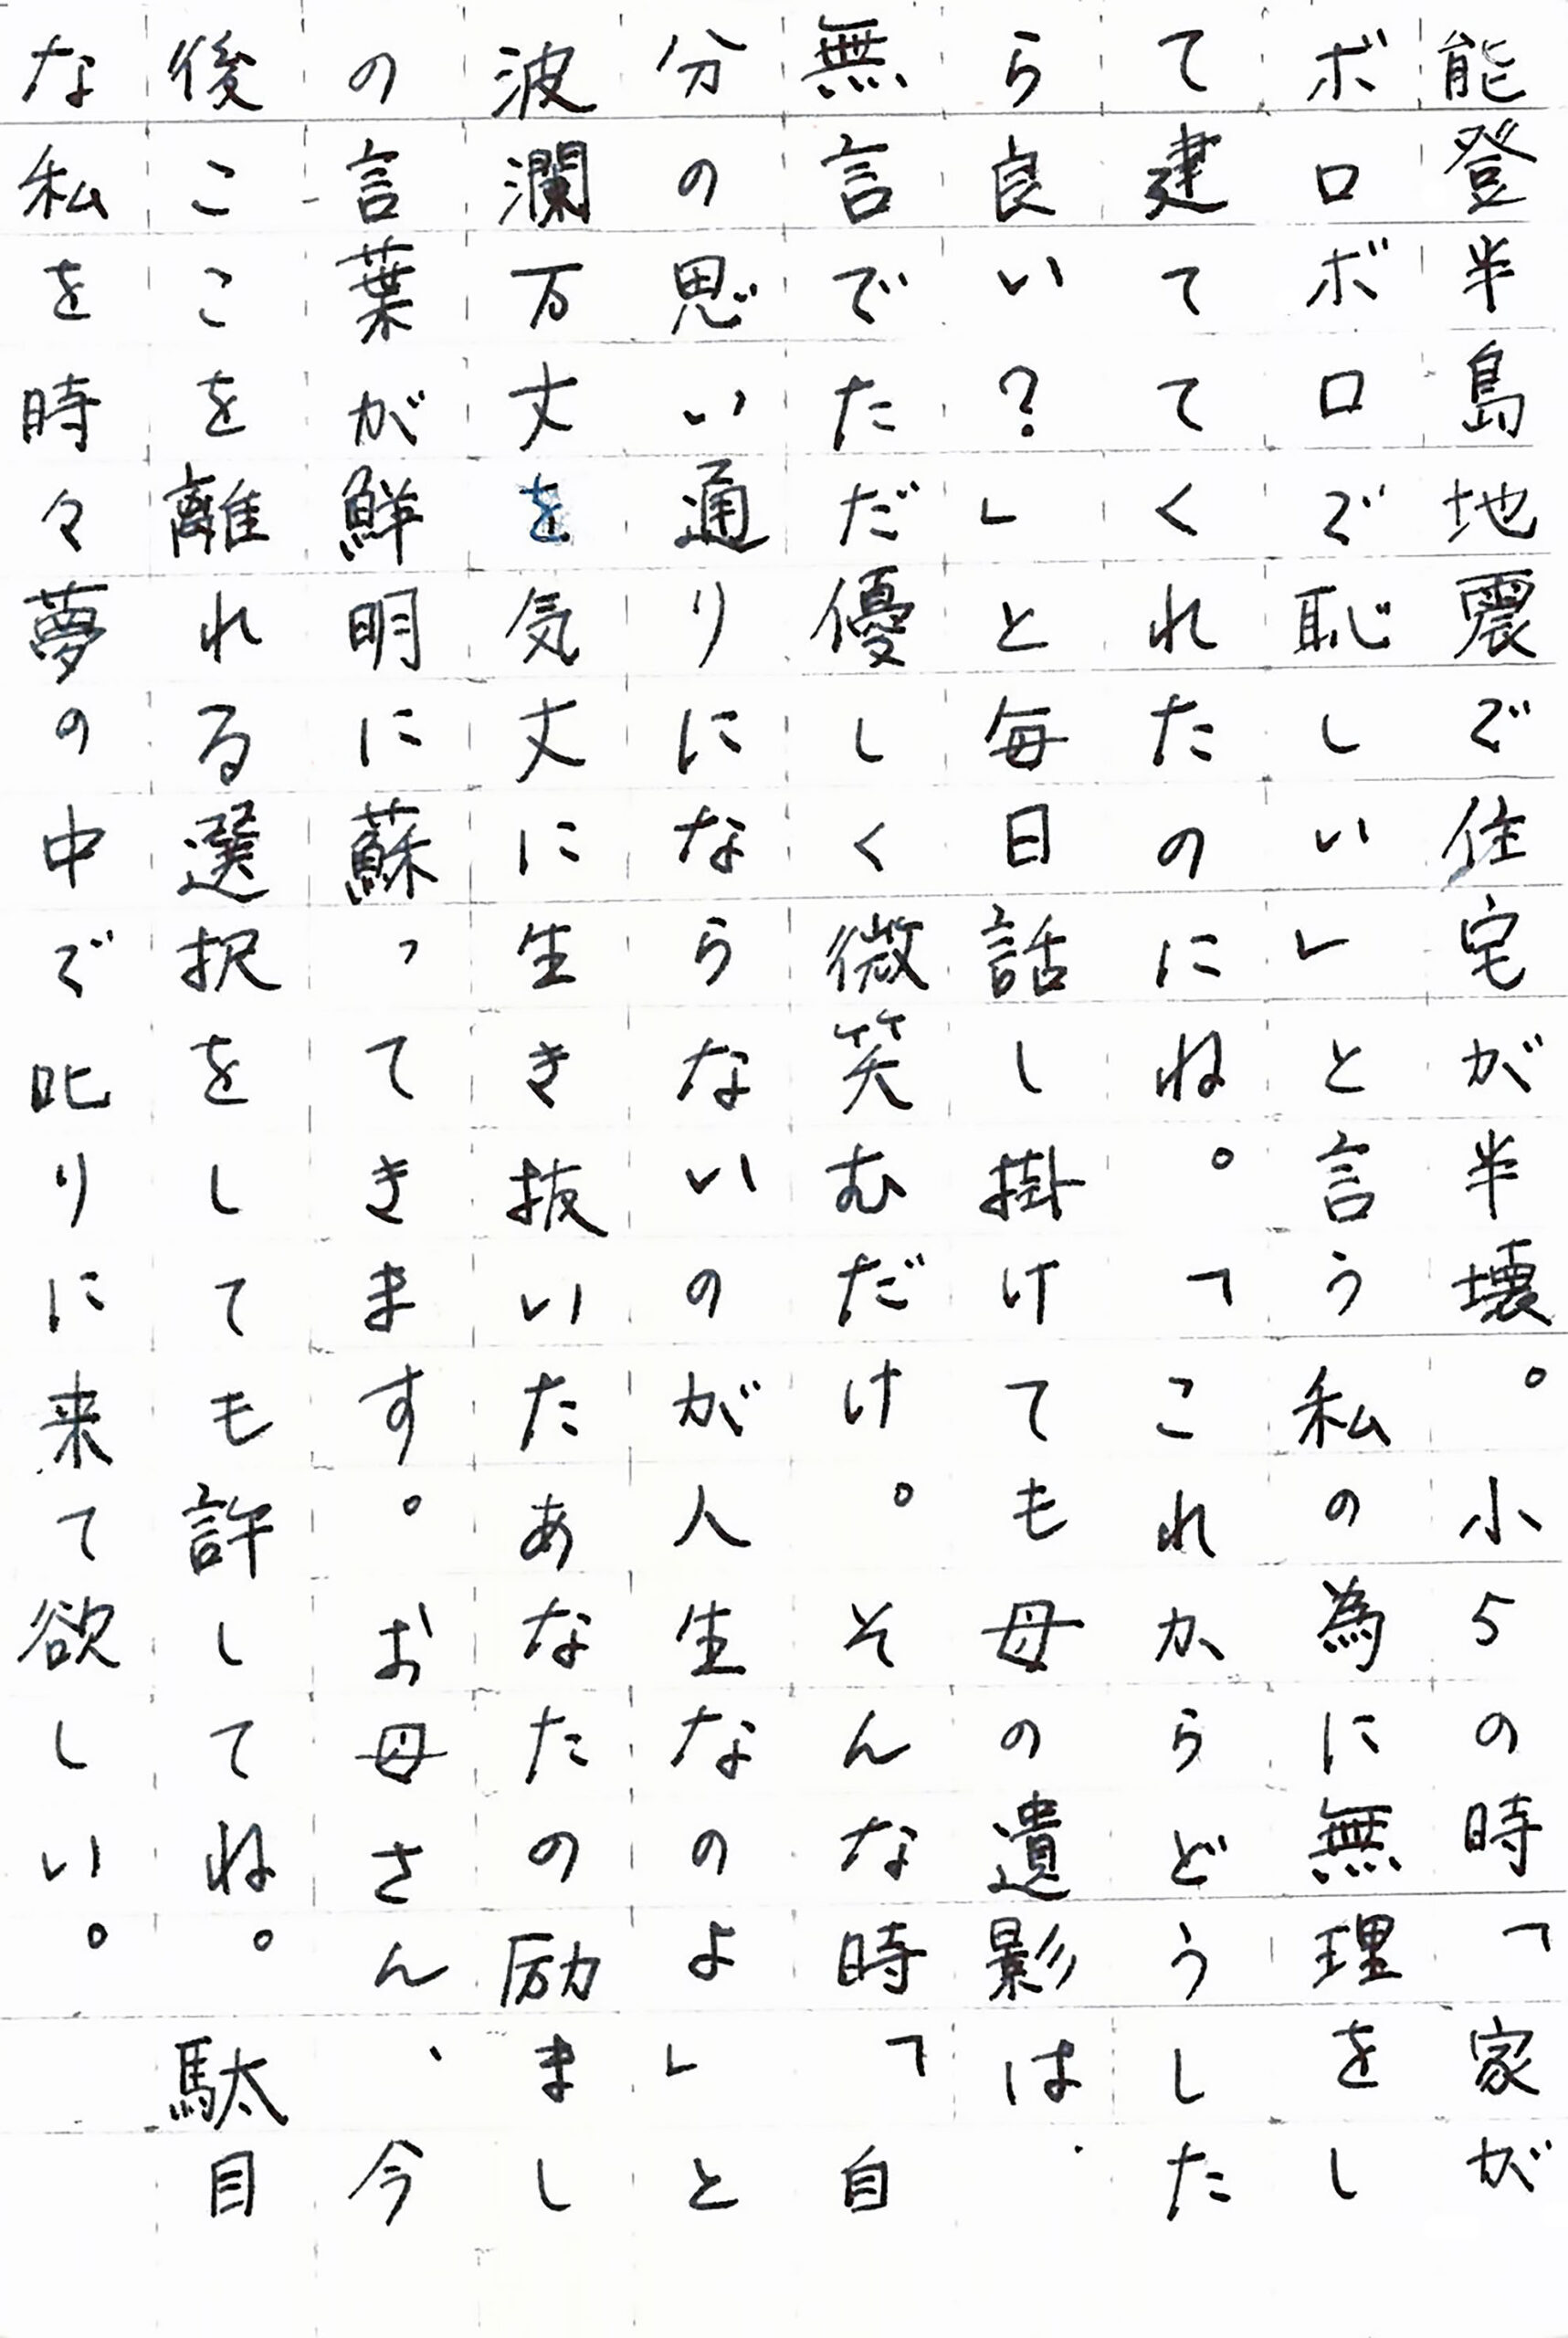 能登半島地震で住宅が半壊。小5の時「家が
ボロボロで恥しい」と言う私の為に無理をし
て建ててくれたのにね。「これからどうした
ら良い?」と毎日話し掛けても母の遺影は、
無言でただ優しく微笑むだけ。そんな時「自
分の思い通りにならないのが人生なのよ」と
波瀾万丈を気丈に生き抜いたあなたの励まし
の言葉が鮮明に蘇ってきます。お母さん、今
後ここを離れる選択をしても許してね。駄目
な私を時々夢の中で叱りに来て欲しい。